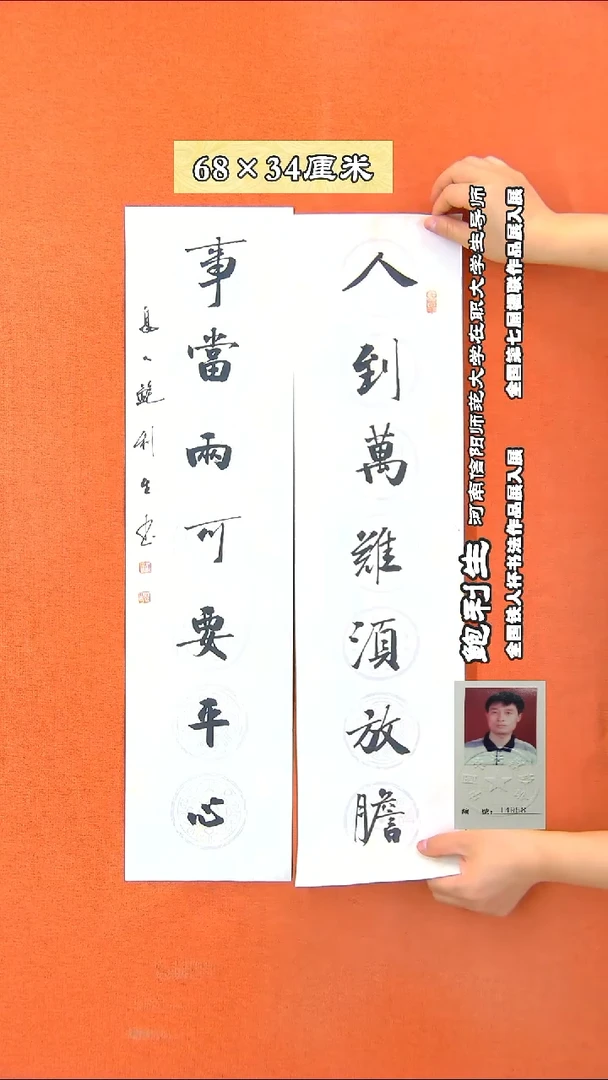 68×34厘米
人到萬難須放膽
事當兩可要平心
鲍利生书
鲍利生 河南信阳师范大学在职大学生导师
全国第七届楹联作品展入展
全国铁人杯书法作品展入展